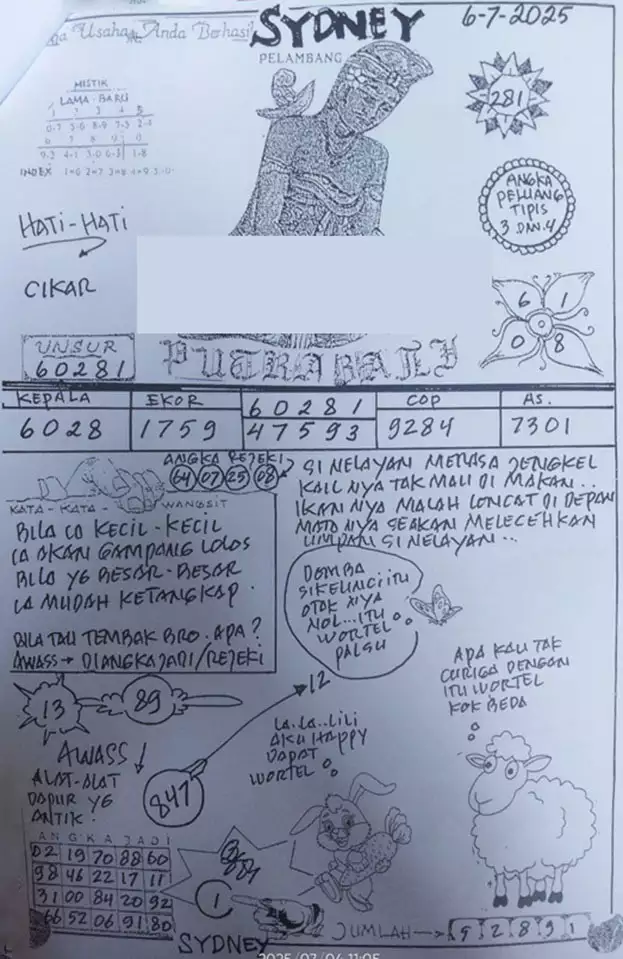 Usaha Anda Berhasil
SYDNEY
6-7-2025
PELAMBANG
MISTIK
LAMA - BARU
INDEX
281
ANGKA
PELUANG
TIPIS
3 DAN 4
HATI-HATI
CIKAR
6 1
0 8
UNSUR
60281
PUTRA BALI
KEPALA
6028
EKOR
1759
60281
47593
COP
9284
AS.
7301
ANGKA REJEKI
64 07 25 08
KATA - KATA - WANGSIT
BILA IA KECIL - KECIL
IA AKAN GAMPANG LOLOS
BILA YG BESAR - BESAR
IA MUDAH KETANGKAP.
BILA TAU TEMBAK BRO. APA?
AWASS → DIANGKA JADI/REJEKI
SI NELAYAN MERASA JENGKEL
KAIL NYA TAK MAU DI MAKAN..
IKAN NYA MALAH LONCAT DI DEPAN
MATA NYA SEAKAN MELECEHKAN
UMPAN SI NELAYAN..
DOMBA
SIKELINCI ITU
OTAK NYA
NOL...ITU
WORTEL
PALSU
APA KAU TAK
CURIGA DENGAN
ITU WORTEL
KOK BEDA
13
89
12
LA.LA..LILI
AKU HAPPY
DAPAT
WORTEL
AWASS
ALAT-ALAT
DAPUR YG
ANTIK!
847
ANGKA JADI
02 19 70 88 60
98 46 22 17 11
31 00 84 20 92
66 52 06 91 80
1
SYDNEY
JUMLAH → 9 2 8 3 1
2025/07/04 11:05